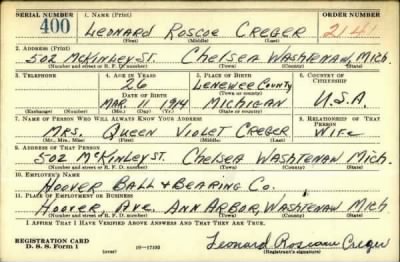 SERIAL NUMBER 1. NAME (Print) ORDER NUMBER
400 LEONARD ROSCOE CREGER 2141
(First) (Middle) (Last)
2. ADDRESS (Print)
502 McKINLEY ST. CHELSEA WASHTENAW, MICH.
(Number and street or R. F. D. number) (Town) (County) (State)
3. TELEPHONE 4. AGE IN YEARS 5. PLACE OF BIRTH 6. COUNTRY OF CITIZENSHIP
26 LENEWEE COUNTY
DATE OF BIRTH (Town or county)
MAR. 11 1914 MICHIGAN U.S.A.
(Exchange) (Number) (Mo.) (Day) (Yr.) (State or country)
7. NAME OF PERSON WHO WILL ALWAYS KNOW YOUR ADDRESS 8. RELATIONSHIP OF THAT PERSON
MRS. QUEEN VIOLET CREGER WIFE
(Mr., Mrs., Miss) (First) (Middle) (Last)
9. ADDRESS OF THAT PERSON
502 McKINLEY ST. CHELSEA WASHTENAW MICH.
(Number and street or R. F. D. number) (Town) (County) (State)
10. EMPLOYER'S NAME
HOOVER BALL & BEARING CO.
11. PLACE OF EMPLOYMENT OR BUSINESS
HOOVER, AVE. ANN ARBOR, WASHTENAW MICH
(Number and street or R. F. D. number) (Town) (County) (State)
I AFFIRM THAT I HAVE VERIFIED ABOVE ANSWERS AND THAT THEY ARE TRUE.
REGISTRATION CARD
D. S. S. Form 1 (over) 16—17105 Leonard Roscoe Creger
(Registrant's signature)